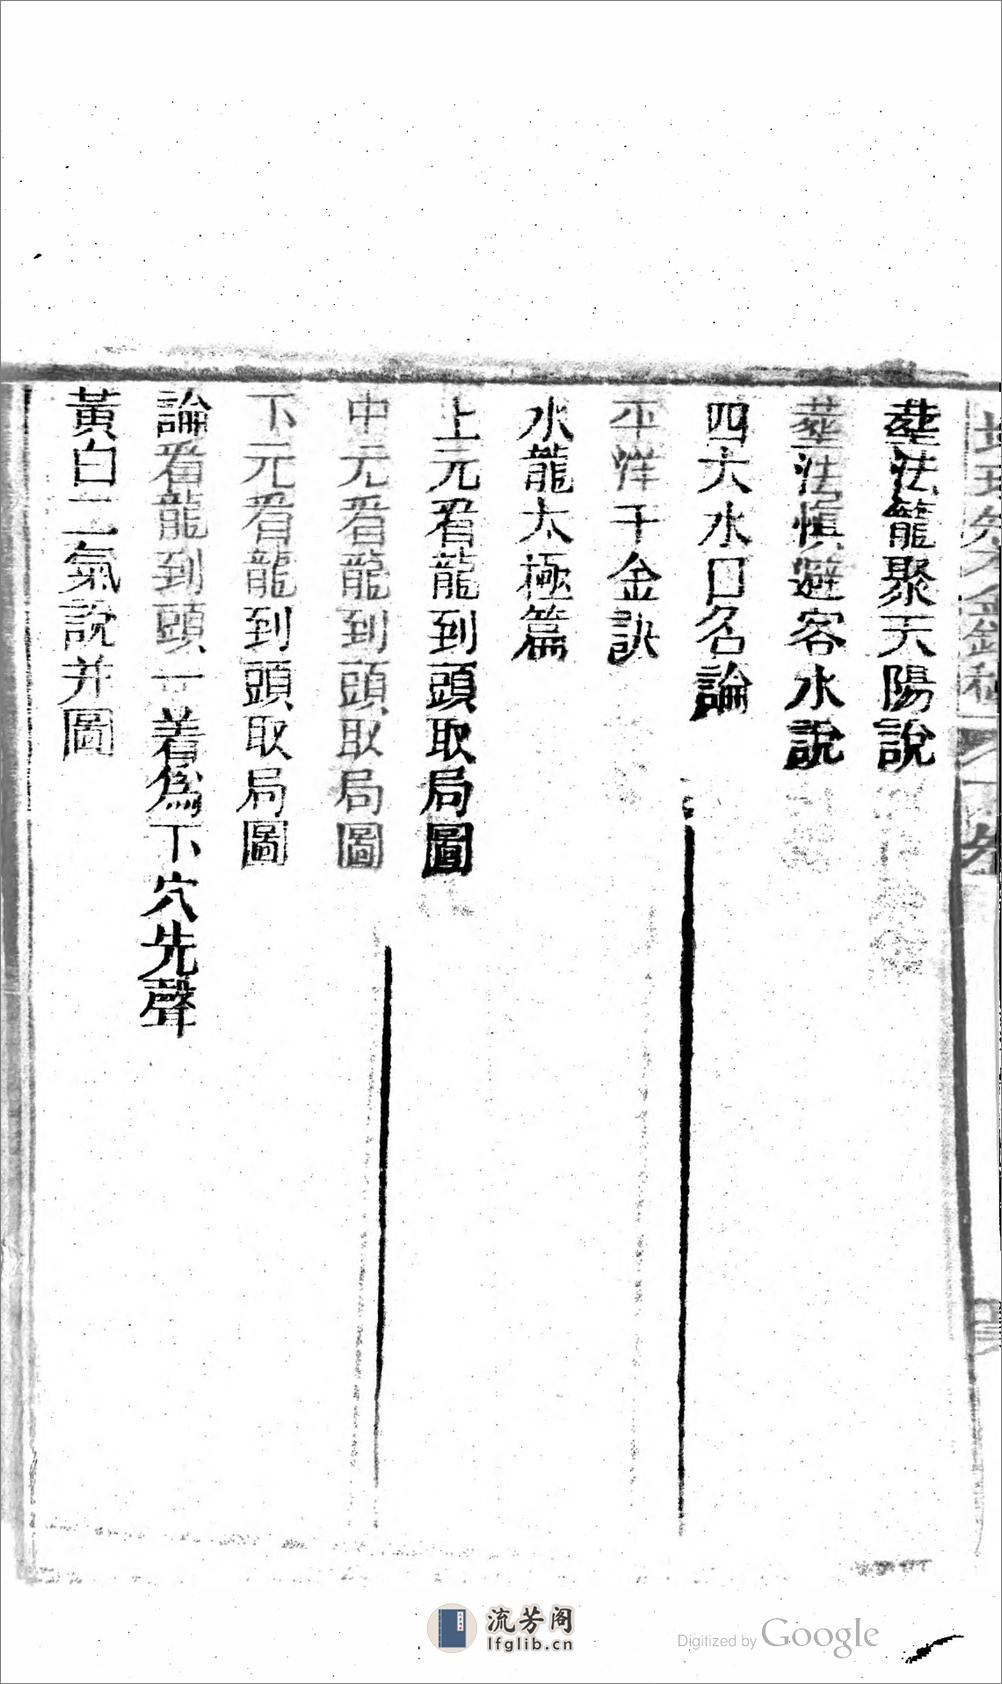 塟法籠聚天陽說
塟法慎避客水說
四大水口名論
平洋千金訣
水龍太極篇
上元看龍到頭取局圖
中元看龍到頭取局圖
下元看龍到頭取局圖
論看龍到頭一着為下穴先聲
黃白二氣說并圖
流芳阁
lfglib.cn
Digitized by Google